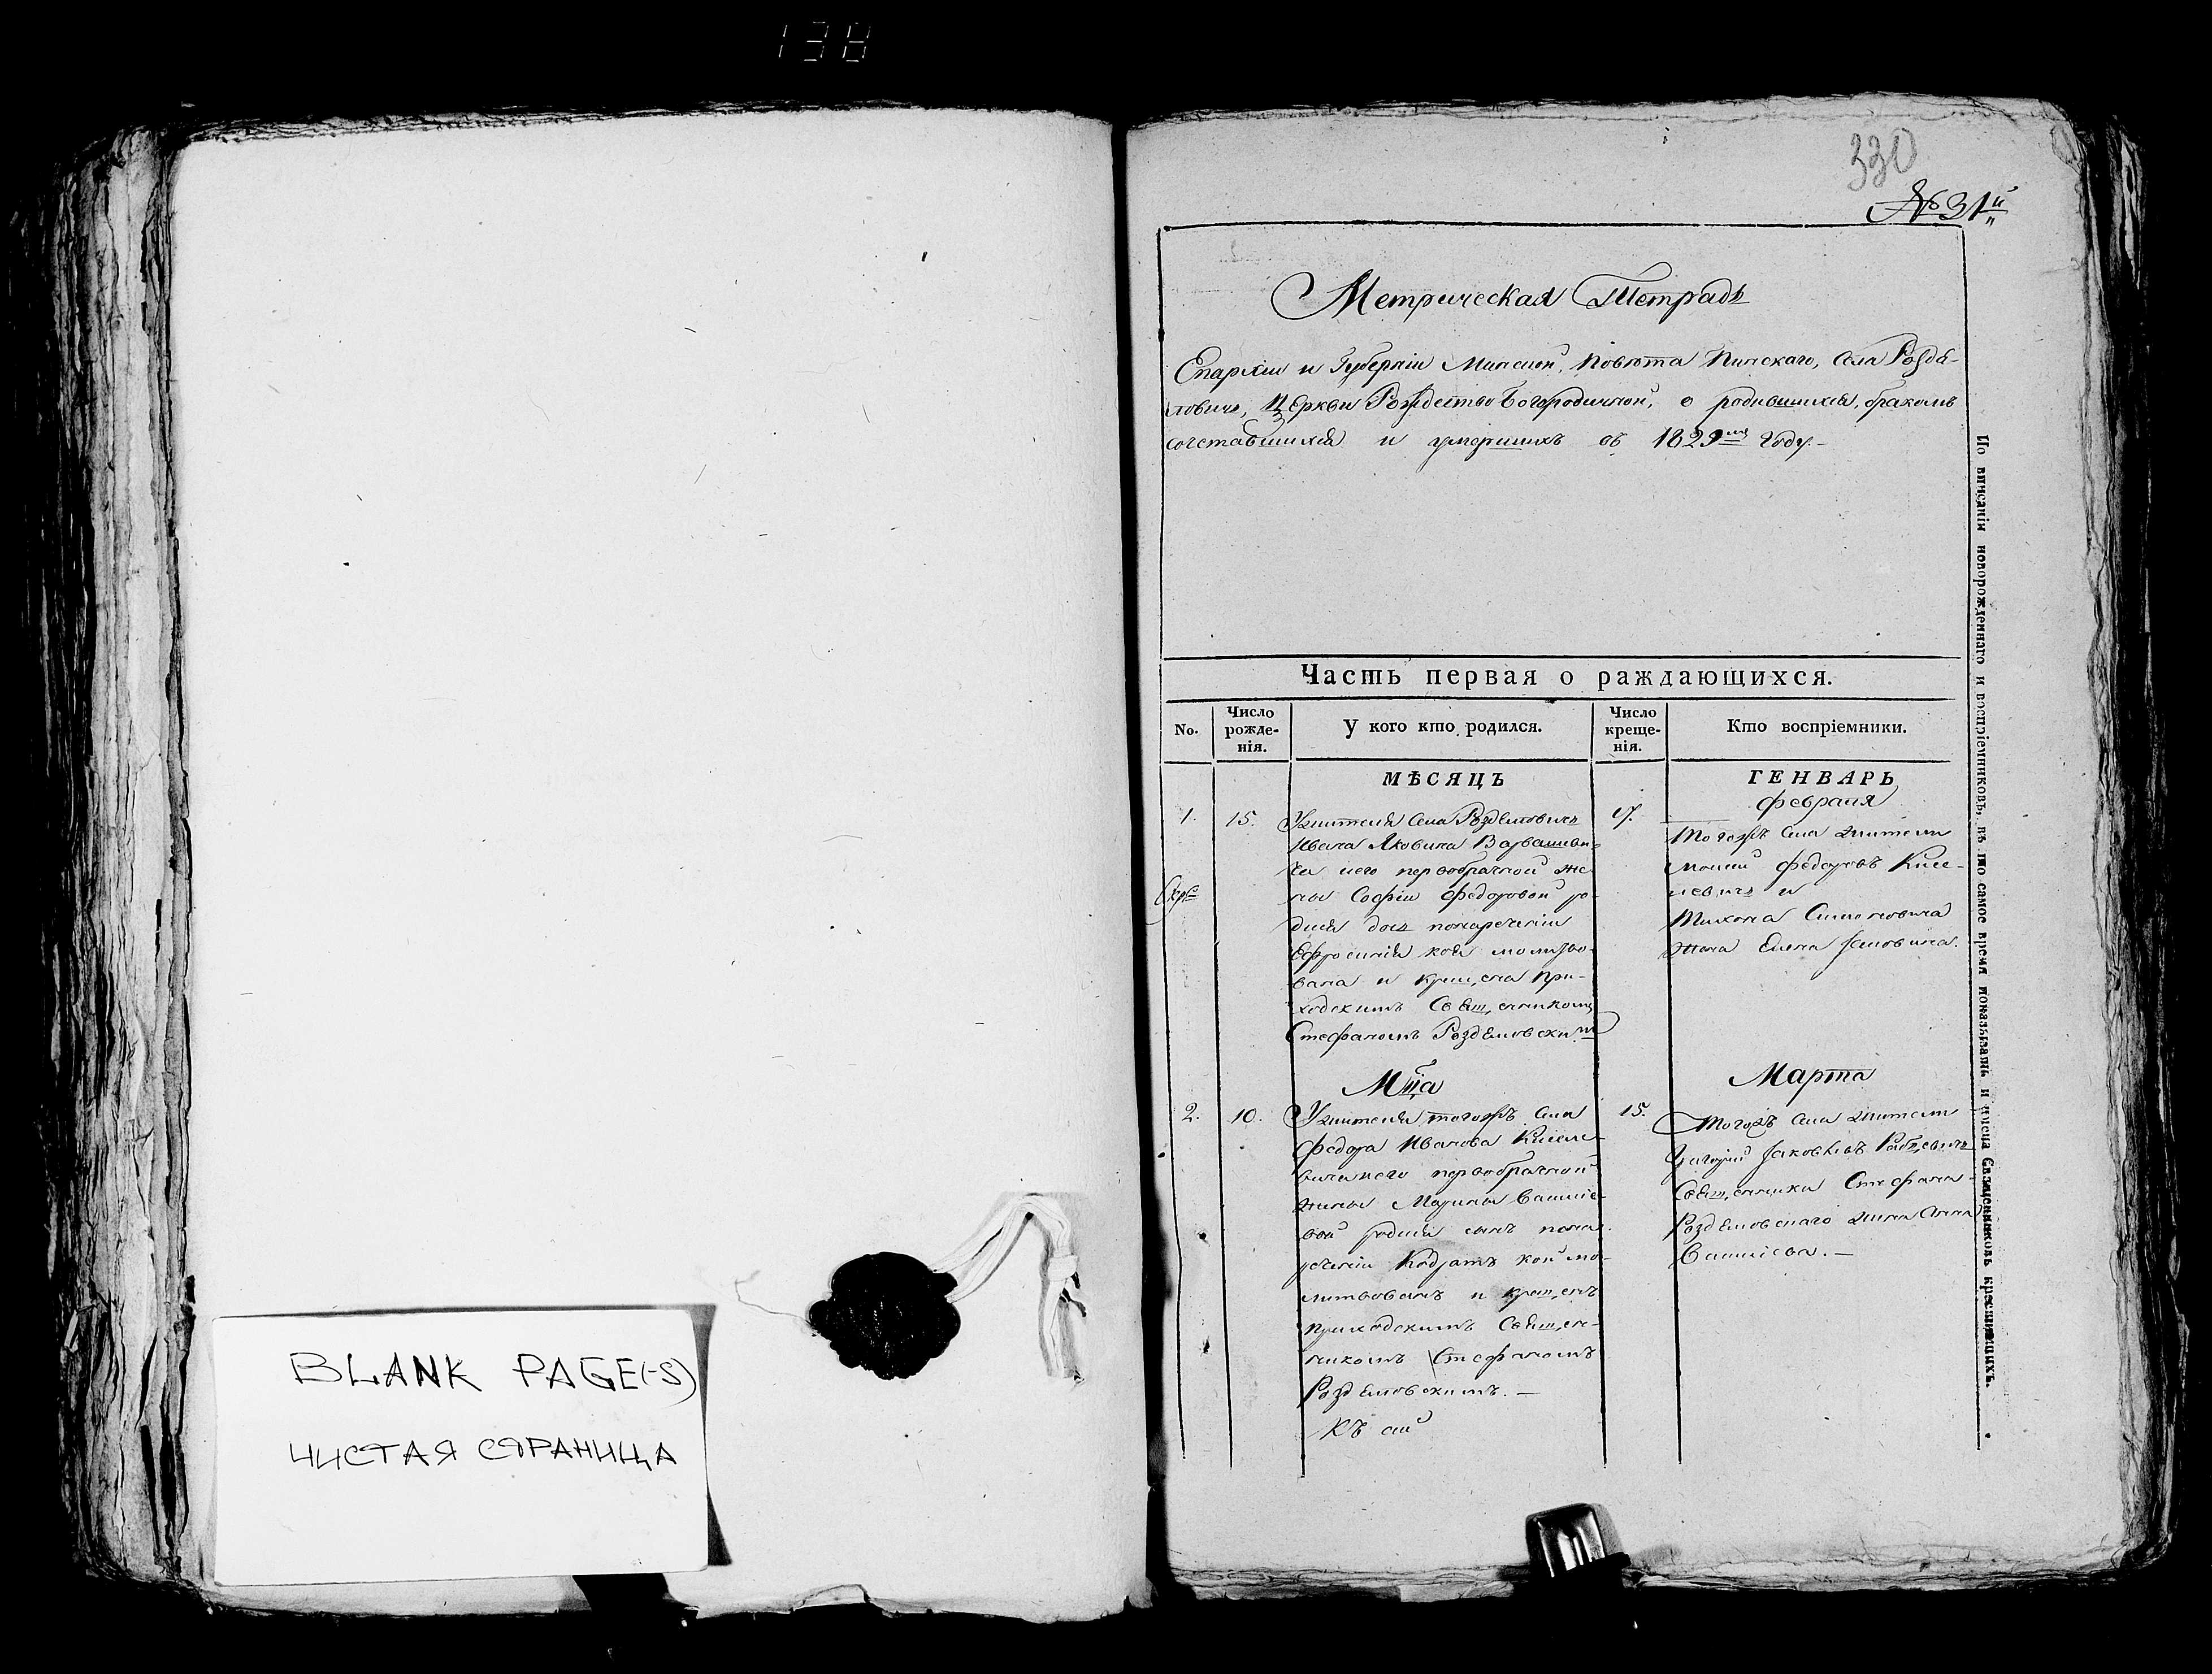 138
BLANK PAGE(-S)
ЧИСТАЯ СТРАНИЦА
330
№ 31й
Метрическая Тетрадь
Епархіи и Губерніи Минской, Повѣта Пинскаго, Села Роздѣ-
ловичь, Церкви Рождество Богородичной, о родившихся, бракомъ
сочетавшихся и умершихъ въ 1829мъ Году.
Часть первая о раждающихся.
No.
Число рожде- нія.
У кого кто родился.
Число креще- нія.
Кто воспріемники.
МѢСЯЦЪ
ГЕНВАРЬ
февраля
1.
15.
Ужителя Села Роздѣловичь
Ивана Яковича
иего первобрачной же-
ны Софіи Федоровой ро-
дися дочь понареченіи
Ефросинія коя молитво-
вана и крещена При-
ходскимъ Священникомъ
Стефаномъ Роздѣловским
17.
Тогожъ Села жители
Федоровъ Кисе-
левичь и
Тихона Симоновича
жена Елена
Мца
Марта
2.
10.
Ужителя тогожъ Села
Федора Иванова Кисиле-
вича иего первобрачной
жены Марины Василіе-
вой родися сынъ пона-
реченіи Кодратъ кой мо-
литвованъ и крещенъ
приходскимъ Священ-
никомъ Стефаномъ
Роздѣловскимъ. —
Къ сей
15.
Тогожъ Села жители
Григорій Яковлевъ
Священника Стефана
Роздѣловскаго жена Анна
Василіева. —
По вписаніи новорожденнаго и воспріемниковъ, въ то самое время показывать и имена Священниковъ крестящихъ.